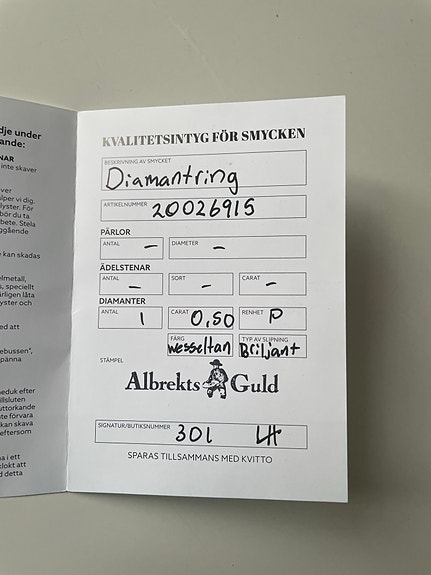 dje under
ande:
NAR
inte skaver
ver
älper vi dig.
lyster. För
bör du ta
bete. Stela
ggående
kan skadas
elmetall,
s, speciellt
ärligen låta
yster och
ed att
ebussen",
pänna
neduk efter
illsluten
uttorkande
inte förvara
kan skava
eftersom
na i ett
klokt att
d detta
KVALITETSINTYG FÖR SMYCKEN
BESKRIVNING AV SMYCKET
Diamantring
ARTIKELNUMMER 20026915
PÄRLOR
ANTAL – DIAMETER –
ÄDELSTENAR
ANTAL – SORT – CARAT –
DIAMANTER
ANTAL 1 CARAT 0,50 RENHET P
FÄRG Wesseltan TYP AV SLIPNING Briljant
STÄMPEL
Albrekts Guld
SIGNATUR/BUTIKSNUMMER 301 LH
SPARAS TILLSAMMANS MED KVITTO